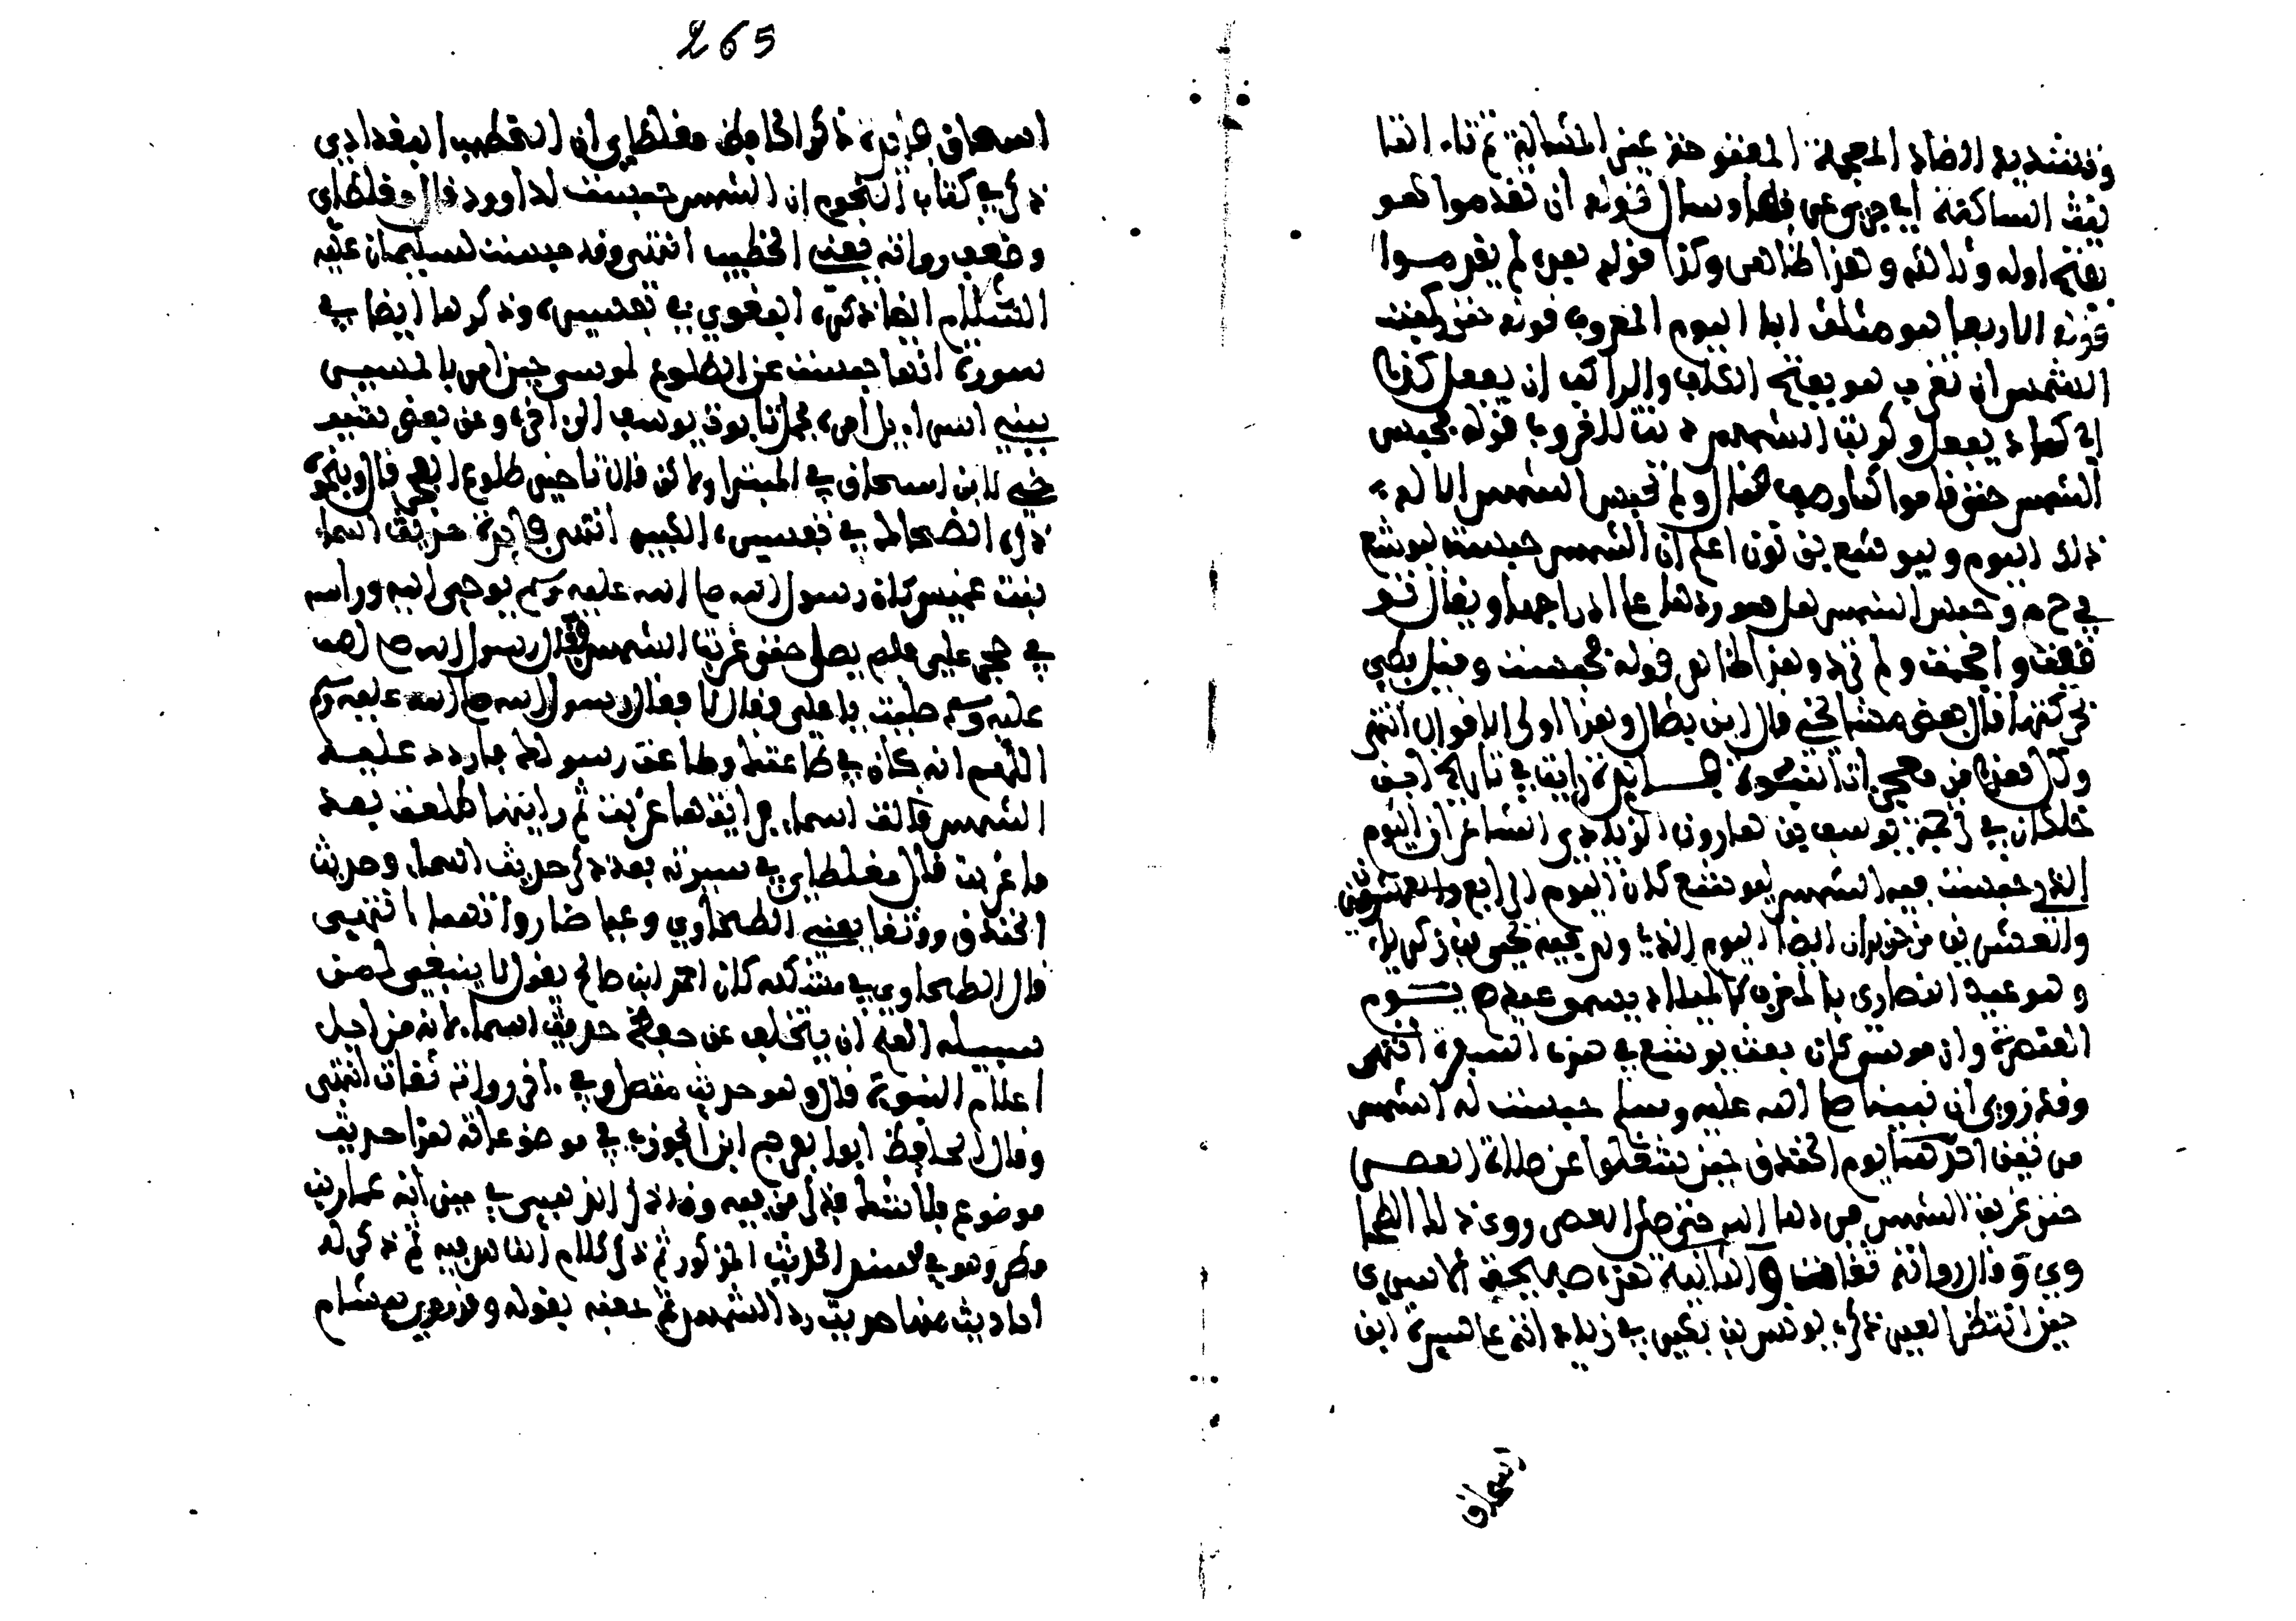 وتشديد الضاد المعجمة المفتوحتين المشالة ثم تاء التا
نيث الساكنة اي جرى عرقها وسال قوله ان تقدموا هو
بفتح اوله وثالثه وهذا ظاهر وكذا قوله بعد لم يقدموا
قوله الاربعا هو مثلث البا اليوم المعروف قوله حتى كبنت
الشمس ان تغرب هو بفتح الكاف والراكب ان يفعل كذا
اي كاد يفعل وكربت الشمس دنت للغروب قوله فحبس
الشمس حتى قدموا كما وصف فقال ولم تحبس الشمس الا له
ذلك اليوم وليوشع بن نون اعلم ان الشمس حبست ليوشع
وحبس الشمس هل هو ردها على ادراجها ويقال
وقفت ولم ترد وهذا ظاهر قوله فحبست وقيل بطئ
حركتها قال بعض مشايخي قال ابن بطال وهذا اولى الاقوال انتهى
وكل هذا من معجزات النبوة فايدة رايت في تاريخ ابن
خلكان في ترجمة يوسف بن هارون الرمادي الشاعر ان اليوم
الذي حبست فيه الشمس ليوشع كان اليوم الرابع
والعشرين من حزيران ايضا اليوم الذي ولد فيه يحيى بن زكريا
وهو عيد النصارى بالمغرب كالميلاد يسمو عندهم يوم
العنصرة وان موسى كان بعث يوشع في هذه السرية انتهى
وقد روي ان نبينا صلى الله عليه وسلم حبست له الشمس
مرتين احدهما يوم الخندق حين شغلوا عن صلاة العصر
حتى غربت الشمس فردها الله حتى صلى العصر روى ذلك الطحا
وي وقال رواته ثقات والثانية هذه صبيحة الاسرى
حين انتظر العير ذكره يونس بن بكير في زيادته على سيرة ابن
اسحاق
265
اسحاق فايدة ذكر الحافظ مغلطاي ان الخطيب البغدادي
ذكر في كتاب النجوم ان الشمس حبست لداوود قال مغلطاي
وضعف رواته يعني الخطيب انتهى وقد حبست لسليمان عليه
السلام ايضا ذكره البغوي في تفسيره وذكرها ايضا في
سورة انها حبست عن الطلوع لموسى حين امر بالمسير
ببني اسراءيل امره بحمل تابوت يوسف الى اخره وعن بعض
خي لابن اسحاق في المبتدا ولكن قال تاخير طلوع الفجر قال وبنحوه
ذكره الضحاك في تفسيره الكبير انتهى فايدة حديث اسما
بنت عميس كان رسول الله صلى الله عليه وسلم يوحى اليه وراسه
في حجر علي فلم يصل حتى غربت الشمس فقال رسول الله صلى الله
عليه وسلم صليت يا علي فقال لا فقال رسول الله صلى الله عليه وسلم
اللهم انه كان في طاعتك وطاعة رسولك فاردد عليه
الشمس قالت اسما فرايتها غربت ثم رايتها طلعت بعد
ما غربت قال مغلطاي في سيرته بعد ذكر حديث اسما وحديث
الخندق ووثقا يعني الطحاوي وعياضا رواتهما انتهى
قال الطحاوي في مشكله كان احمد ابن صالح يقول لا ينبغي لمن
سبيله العلم ان يتخلف عن حفظ حديث اسما لانه من اجل
اعلام النبوة قال وهو حديث متصل وفي اخر رواته ثقات انتهى
وقال الحافظ ابوا الفرج ابن الجوزي في موضوعاته هذا حديث
موضوع بلا شك فذكر من فيه وقد ذكر الذهبي في ميزانه عمار بن
مطر وهو في مسند الحديث المذكور ثم ذكر كلام الناس فيه ثم ذكر له
احاديث منها حديث رد الشمس ثم عقبه بقوله وقد روى هشام